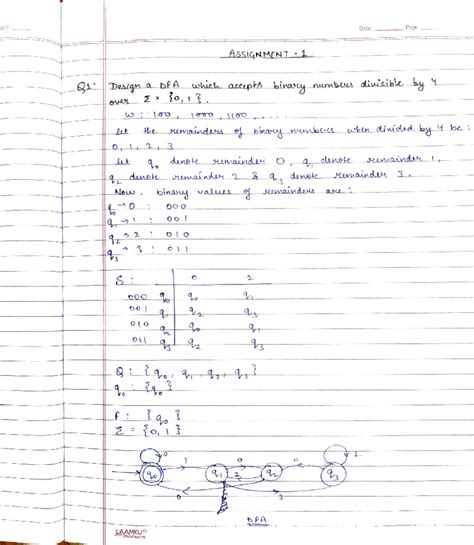 Date        Page
ASSIGNMENT - 1
Q1. Design a DFA which accepts binary numbers divisible by 4
over Σ = {0,1}.
w : 100, 1000, 1100, ....
let the remainders of binary numbers when divided by 4 be :
0, 1, 2, 3
let q0 denote remainder 0, q1 denote remainder 1,
q2 denote remainder 2 & q3 denote remainder 3.
Now, binary values of remainders are :
q0 → 0 : 000
q1 → 1 : 001
q2 → 2 : 010
q3 → 3 : 011
δ : 0 1
000 q0 q0 q1
001 q1 q2 q3
010 q2 q0 q1
011 q3 q2 q3
Q : {q0, q1, q2, q3}
q0 : {q0}
F : {q0}
Σ = {0,1}
0 1
1 0 0
q0 q1 q2 q3
1
0 1
DFA
SAAMKU